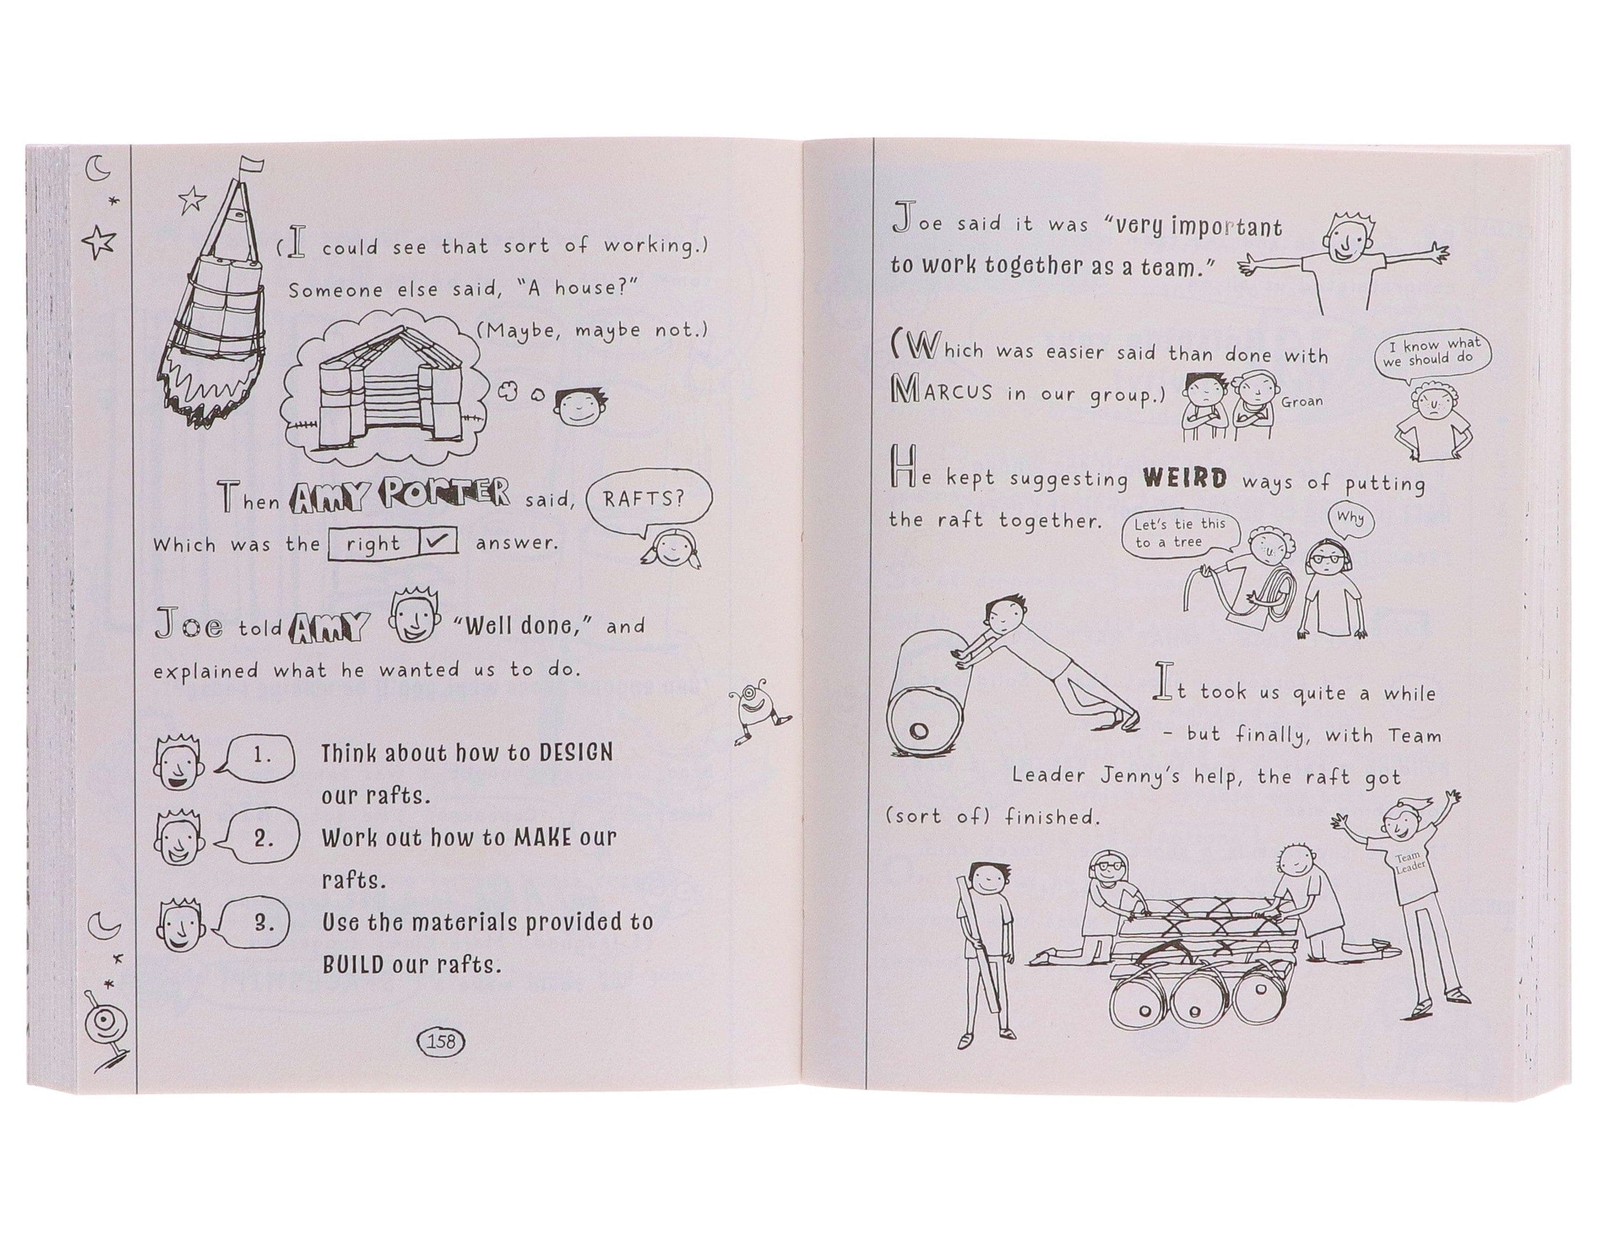 (I could see that sort of working.)
Someone else said, "A house?"
(Maybe, maybe not.)
Then AMY PORTER said,
RAFTS?
Which was the right ✓ answer.
Joe told AMY "Well done," and
explained what he wanted us to do.
1. Think about how to DESIGN
our rafts.
2. Work out how to MAKE our
rafts.
3. Use the materials provided to
BUILD our rafts.
158
Joe said it was "very important
to work together as a team."
(Which was easier said than done with
MARCUS in our group.)
Groan
I know what
we should do
He kept suggesting WEIRD ways of putting
the raft together.
Let's tie this
to a tree
Why
It took us quite a while
- but finally, with Team
Leader Jenny's help, the raft got
(sort of) finished.
Team
Leader